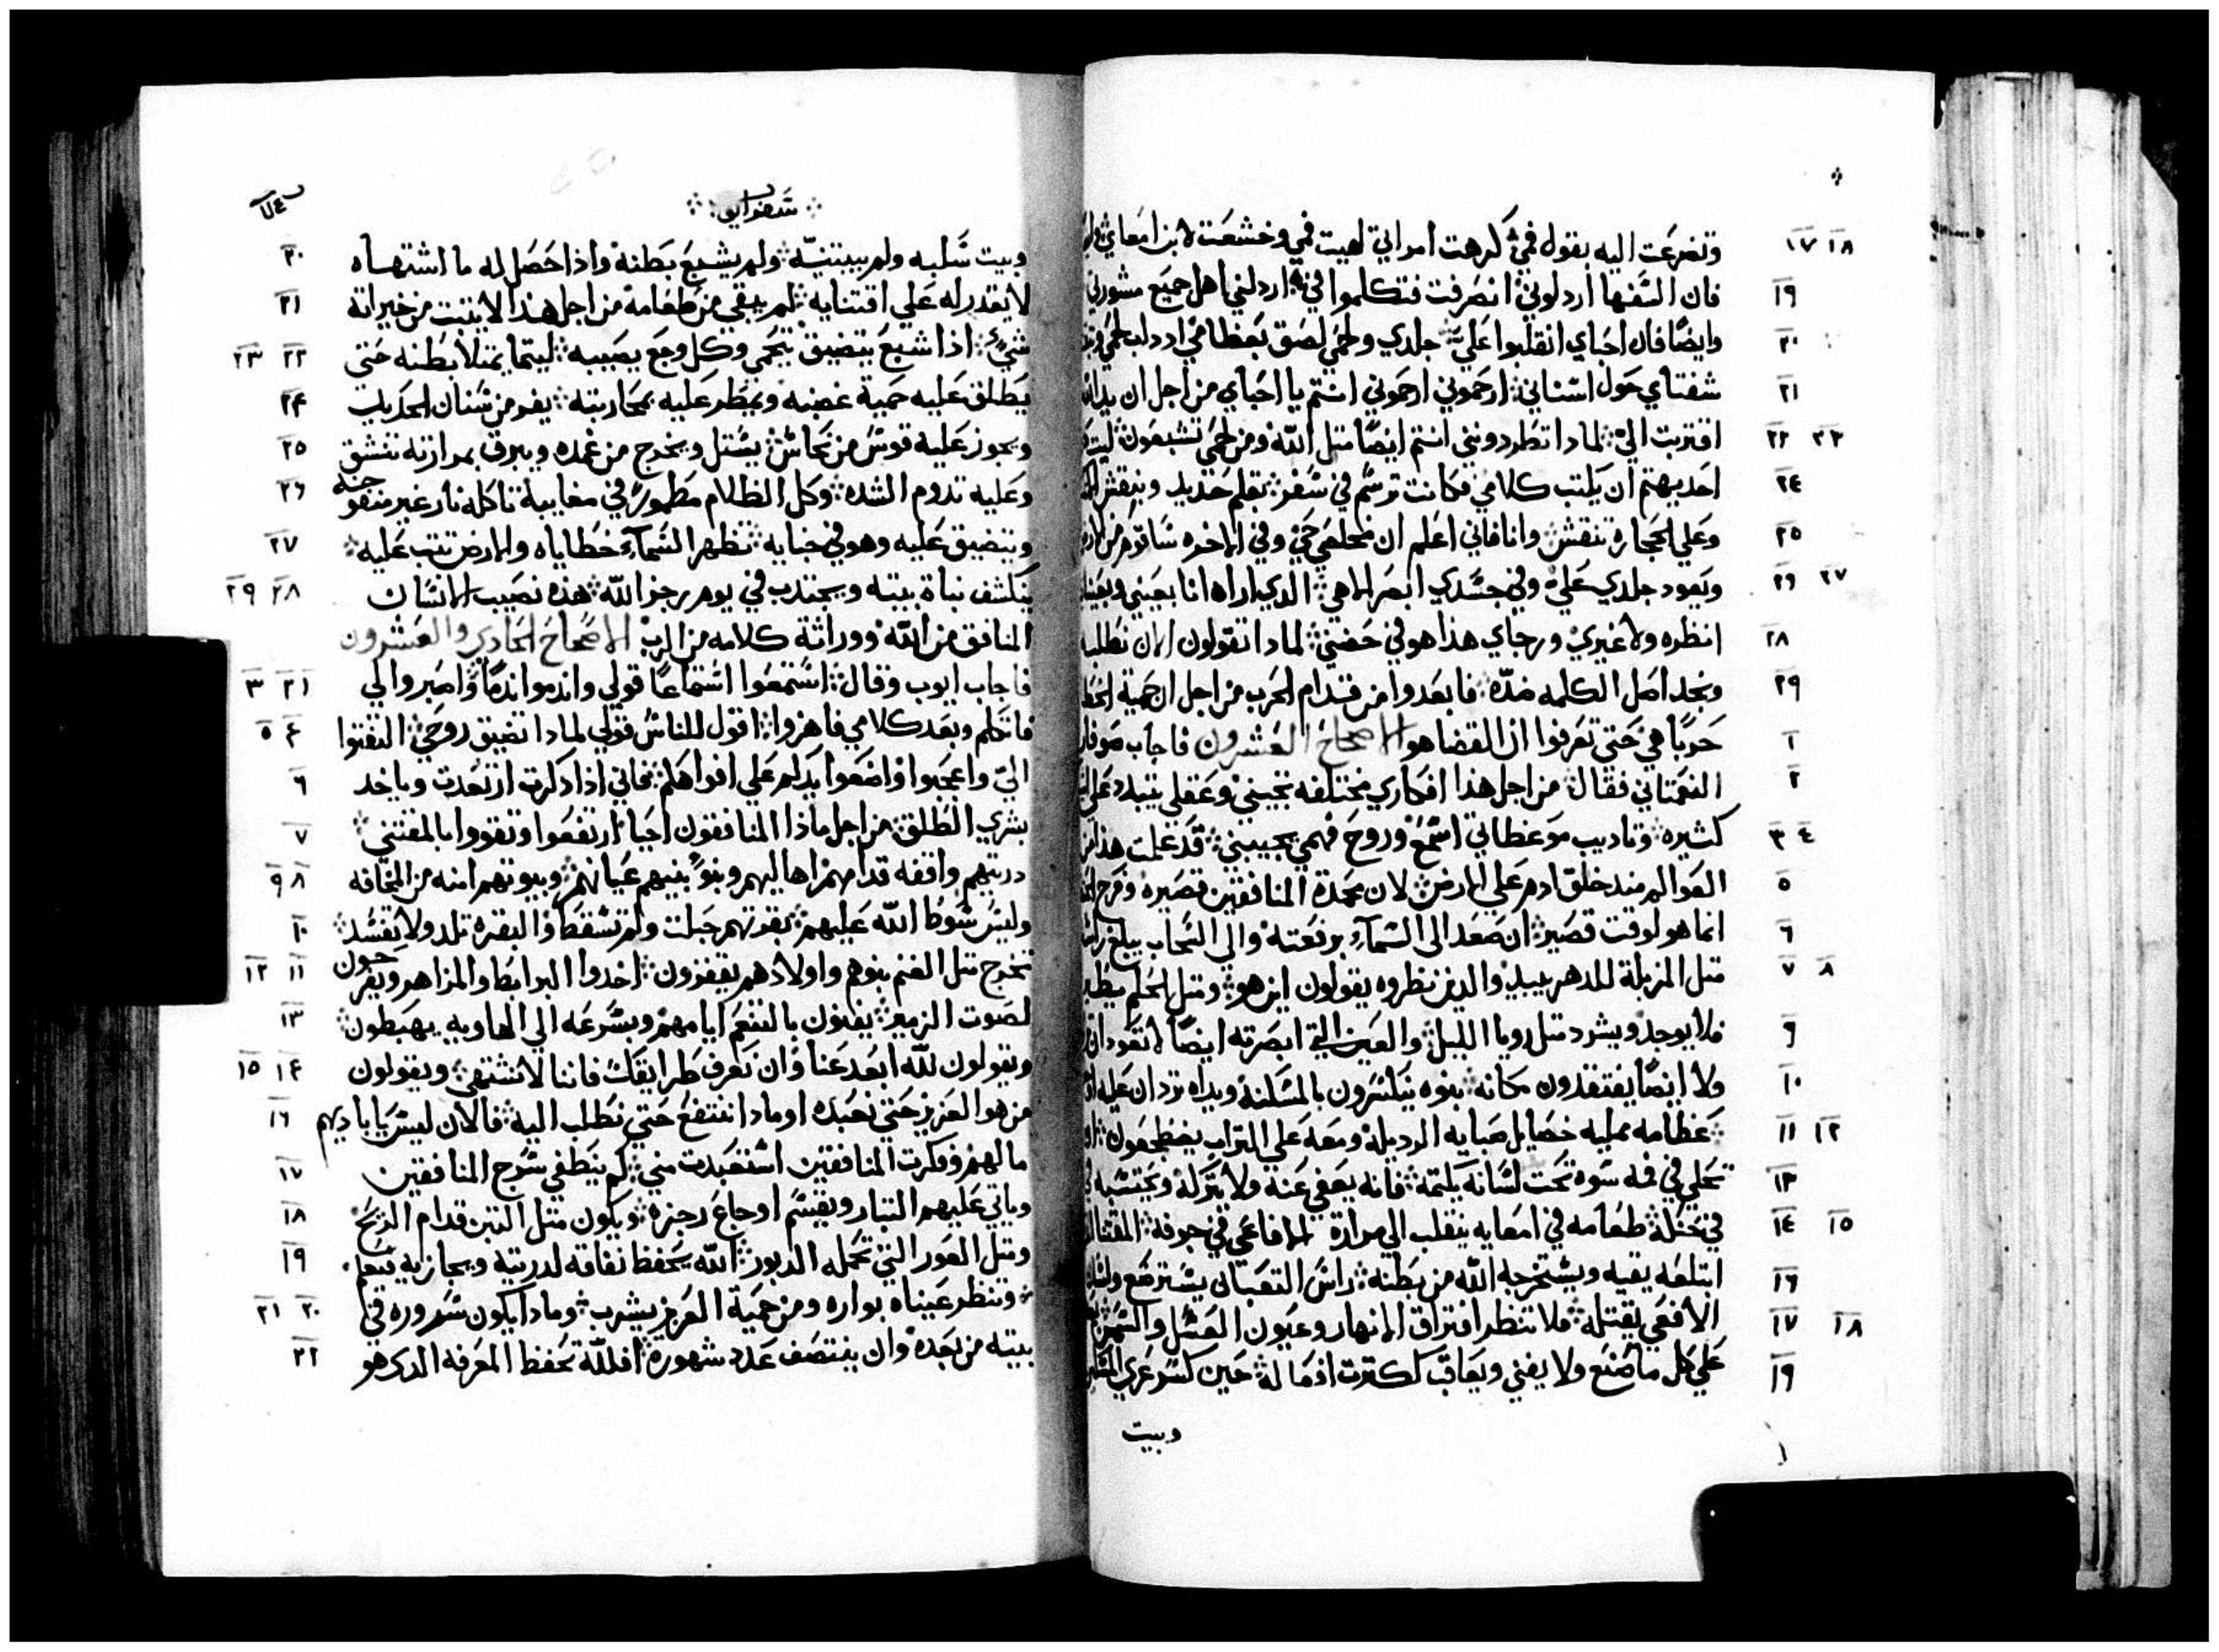 ١٧ ١٨ وتضرعت اليه بقول فمي كرهت امراتي لهيت فمي وخشعت لابن امعاي
١٩ فان السفها اردلوني انصرفت فتكلموا في اردلني اهل جميع مشورتي
٢٠ وايضا فان احباي انقلبوا علي جلدي ولحمي لصق بعظامي
٢١ شفتاي حول اسناني ارحموني ارحموني انتم يا احباي من اجل ان يد الله
٢٢ ٢٣ اقتربت الي لمادا تطردونني انتم ايضا متل الله ومن لحمي تشبعون ليت
٢٤ احد يهتم ان يكتب كلامي فكانت ترسم في سفر بقلم حديد وينقش
٢٥ وعلي الحجارة تنقش وانا فاني اعلم ان مخلصي حي وفي الاخره ساقوم من الارض
٢٦ ٢٧ وتعود جلدي علي وفي جسدي ابصر الاهي الدي اراه انا بعيني
٢٨ انظره ولا غيري ورجاي هذا هو في حضني لمادا تقولون الان نطلبه
٢٩ ونجد اصل الكلمه ضده فابعدوا من قدام الحرب من اجل ان حمية
١ حربا هي حتي تعرفوا ان القضا هو الاصحاح العشرون فاجاب صوفار
٢ النعمتاني فقال من اجل هذا افكاري مختلفه تجيبني وعقلي يتبلد
٣ ٤ كثيره وتاديب موعظاتي اسمع وروح فهمي يجيبني قد علمت هذا من
٥ العوالم مند خلق ادم علي الارض لان محمدة المنافقين قصيره وفرح
٦ انما هو لوقت قصير ان صعد الى السماء برفعته والي السحاب يبلغ راسه
٧ ٨ متل المزبلة للدهر يبيد والدين نظروه يقولون اين هو ومتل الحلم
٩ فلا يوجد ويشرد متل رويا الليل والعين التي ابصرته ايضا لا تعود
١٠ ولا ايضا يفتقدون مكانه بنوه ينكسرون بالمسكنة ويداه تردان عليه
١١ ١٢ عظامه ممليه خصايل صبايه الرديلة ومعه علي التراب يضطجعون
١٣ تحلي في فمه سوه تحت لسانه يكتمه فانه يعفي عنه ولا يتركه
١٤ ١٥ طعامه في امعايه ينقلب الي مرارة الافاعي في جوفه
١٦ ابتلعه يقيه ويستخرجه الله من بطنه راس التعباني يسترضع ولسان
١٧ ١٨ الافعي يقتله فلا تنظر افتراق الانهار وعيون العسل والسمن
١٩ علي كل ما صنع ولا يفني ويعاقب لكترت افعاله حين كسر
وبيت
سفر ايوب
٢٠ وبيت سلبه ولم يبتنيه ولم يشبع بطنه واذا حصل له ما اشتهاه
٢١ لا يقدر له علي اقتنايه لم يبقي من طعامه من اجل هذا لا يتبت من خيراته
٢٢ ٢٣ شي اذا شبع يتضيق يتحمي وكل وجع يصيبه ليتما يمتلا بطنه حتي
٢٤ يطلق عليه حمية غضبه ويمطر عليه محاربته يفر من سنان الحديد
٢٥ ويجوز عليه قوس من نحاس يستل ويخرج من غمده ويبرق بمرارته تنشق
٢٦ وعليه تدوم الشده وكل الظلام مطمور في مغابية تاكله نار غير منفوخة
٢٧ ويتضيق عليه وهو في خبايه تظهر السماء خطاياه والارض تتب عليه
٢٨ ٢٩ ينكشف نباة بيته ويجتدب في يوم رجز الله هذه نصيب الانسان
المنافق من الله ووراثة كلامه من الرب الاصحاح الحادي والعشرون
١ ٢ ٣ فاجاب ايوب وقال استمعوا استماعا قولي واندموا ندما واصبروا لي
٤ ٥ فاتكلم وبعد كلامي فاهزوا اقول للناس قولي لمادا تضيق روحي التفتوا
٦ الي واعجبوا وضعوا يدكم علي افواهكم فاني اذا دكرت ارتعدت وياخد
٧ بشري الطلق من اجل ماذا المنافقون احيا ارتفعوا وتقووا بالمقتني
٨ ٩ دريتهم واقفه قدامهم اهاليهم وبنو بنيهم عيانهم وبيوتهم امنه من المخافه
١٠ وليس سوط الله عليهم بقرتهم حبلت ولم تسقط والبقره تلد ولا تفسد
١١ ١٢ تخرج متل الغنم بنوهم واولادهم يقفزون اخدوا البرابط والمزاهر ويفرحون
١٣ لصوت الزمير يفنون بالتنعم ايامهم وبسرعه الي الهاويه يهبطون
١٤ ١٥ ويقولون لله ابعد عنا وان نعرف طرايقك فاننا لا نشتهي ويقولون
١٦ من هو العزيز حتي نعبده او مادا ننتفع حتي نطلب اليه فالان ليس باياديهم
١٧ مالهم وفكرت المنافقين استبعدت مني كم ينطفي سرج المنافقين
١٨ وياتي عليهم التبار ويقسم اوجاع رجزه ويكون متل التبن قدام الريح
١٩ ومتل العور التي تحمله الدبور الله يحفظ نفاقه لدريته ويجازيه فيعلم
٢٠ ٢١ وتنظر عيناه بواره ومن حمية العزيز يشرب ومادا يكون سروره في
٢٢ بيته من بعده وان ينتصف عدد شهوره افلله تحفظ المعرفه الدي هو